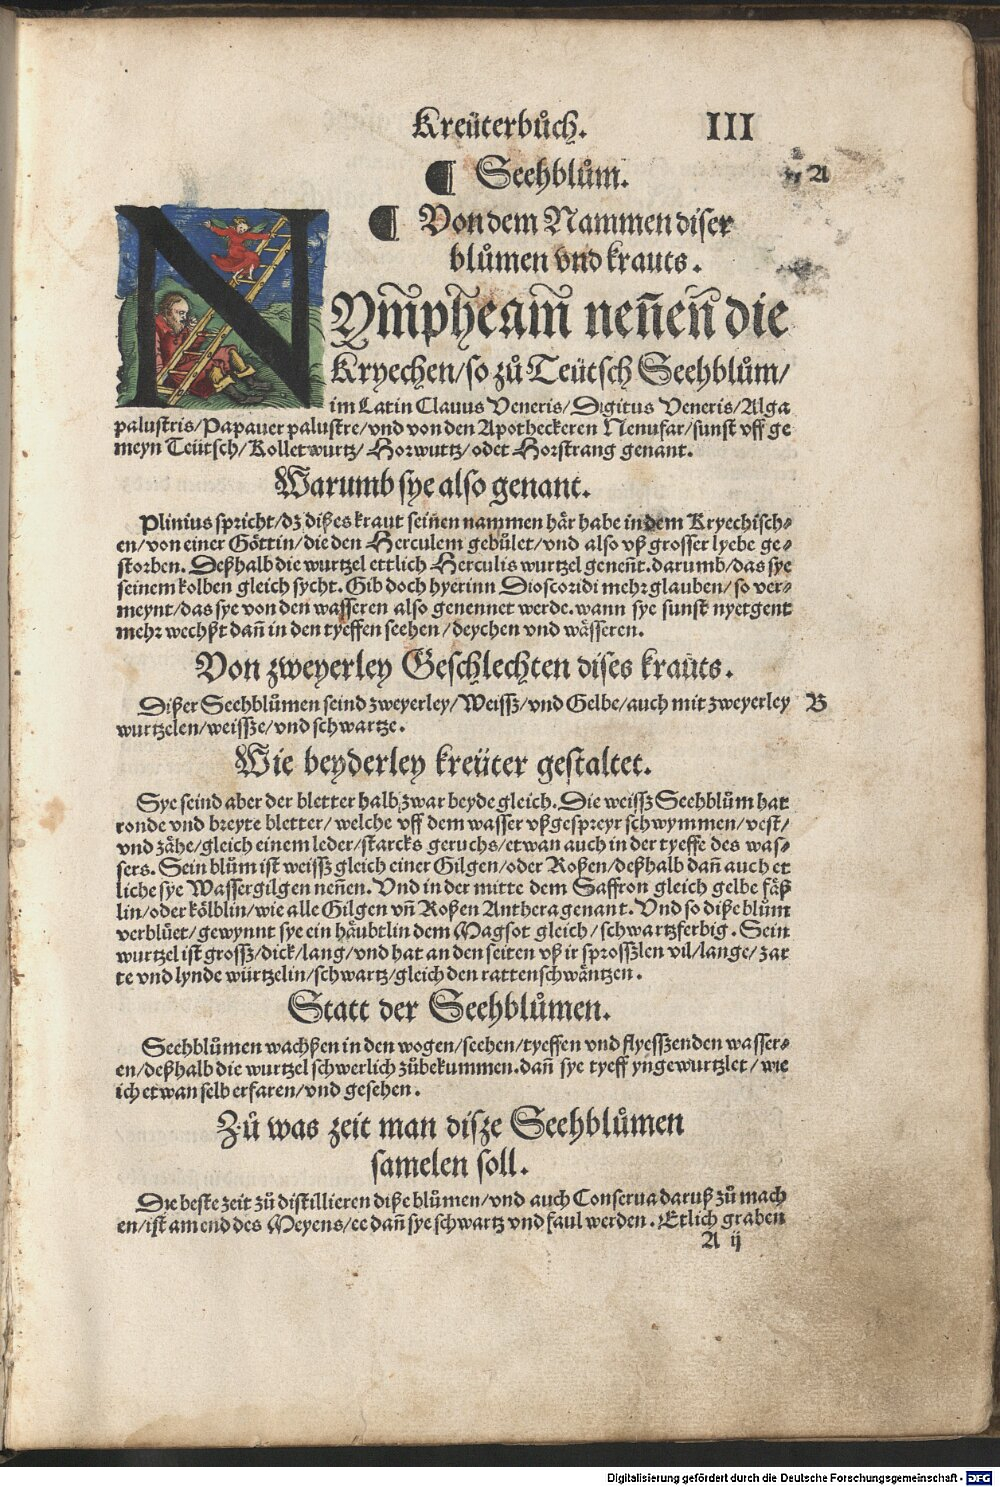 Kreüterbůch. III
Seehblům. A
Von dem Nammen diser
blůmen vnd krauts.
NYm̃pheam̃ neñeñ die
Kryechen/so zů Teütsch Seehblům/
im Latin Clauus Veneris/Digitus Veneris/Alga
palustris/Papauer palustre/vnd von den Apotheckeren Nenufar/sunst vff ge
meyn Teütsch/Kolletwurtz/Horwurtz/oder Horstrang genant.
Warumb sye also genant.
Plinius spricht/dz dißes kraut seinen nammen här habe in dem Kryechisch⸗
en/von einer Göttin/die den Herculem gebůlet/vnd also vß grosser lyebe ge⸗
storben. Deßhalb die wurtzel ettlich Herculis wurtzel geneñt. darumb/das sye
seinem kolben gleich sycht. Gib doch hyerinn Dioscoridi mehr glauben/so ver⸗
meynt/das sye von den wasseren also genennet werde. wann sye sunst nyetgent
mehr wechßt dañ in den tyeffen seehen/deychen vnd wässeren.
Von zweyerley Geschlechten dises krauts.
Dißer Seehblůmen seind zweyerley/Weissz/vnd Gelbe/auch mit zweyerley B
wurtzelen/weissze/vnd schwartze.
Wie beyderley kreüter gestaltet.
Sye seind aber der bletter halb zwar beyde gleich. Die weissz Seehblům hat
ronde vnd breyte bletter/welche vff dem wasser vßgespreyt schwymmen/vest/
vnd zähe/gleich einem leder/starcks geruchs/etwan auch in der tyeffe des was⸗
sers. Sein blům ist weissz gleich einer Gilgen/oder Roßen/deßhalb dañ auch et
liche sye Wassergilgen neñen. Vnd in der mitte dem Saffron gleich gelbe fäß
lin/oder kölblin/wie alle Gilgen vñ Roßen Anthera genant. Vnd so diße blům
verblüet/gewynnt sye ein häubtlin dem Magsot gleich/schwartzferbig. Sein
wurtzel ist grossz/dick/lang/vnd hat an den seiten vß ir sprosszlen vil/lange/zar
te vnd lynde würtzelin/schwartz/gleich den rattenschwäntzen.
Statt der Seehblůmen.
Seehblůmen wachßen in den wogen/seehen/tyeffen vnd flyesszenden wasser⸗
en/deßhalb die wurtzel schwerlich zůbekummen. dañ sye tyeff yngewurtzlet/wie
ich etwan selb erfaren/vnd gesehen.
Zů was zeit man disze Seehblůmen
samelen soll.
Die beste zeit zů distillieren diße blůmen/vnd auch Conserua daruß zů mach
en/ist am end des Meyens/ee dañ sye schwartz vnd faul werden. Etlich graben
A ij
Digitalisierung gefördert durch die Deutsche Forschungsgemeinschaft - DFG